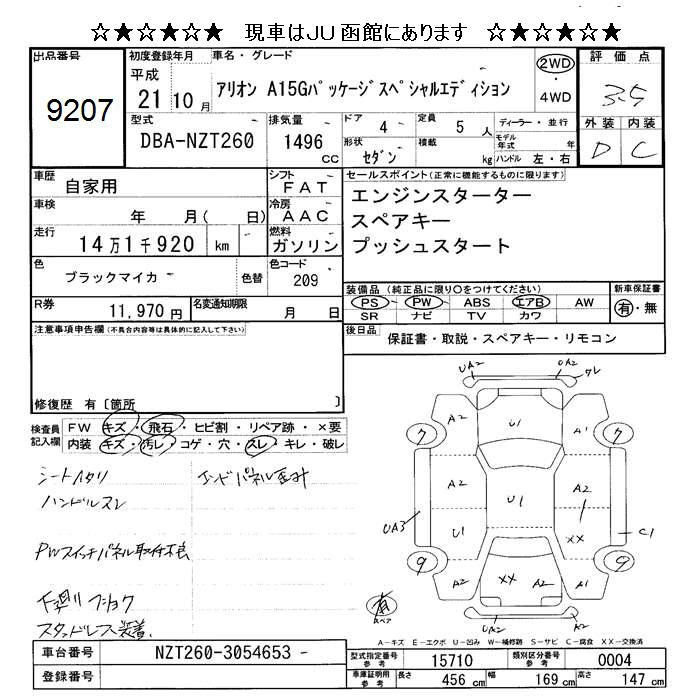 ☆★☆★☆★ 現車はJU函館にあります ☆★☆★☆★
出品番号
9207
初度登録年月
平成
21 10月
車名・グレード
アリオン A15Gパッケージスペシャルエディション
2WD
4WD
評価点
3.5
外装 内装
D C
型式
DBA-NZT260
排気量
1496
CC
ドア 4
形状
セダン
定員 5 人
積載 kg
ディーラー・並行
モデル年式 年
ハンドル 左・右
車歴
自家用
車検
年 月( 日)
走行
14万1千920 km
色
ブラックマイカ
色替
シフト
FAT
冷房
AAC
燃料
ガソリン
色コード
209
R券
11,970円
名変通知期限
月 日
セールスポイント(正常に機能するものに限ります)
エンジンスターター
スペアキー
プッシュスタート
装備品 (純正品に限り○をつけてください)
PS PW ABS エアB AW
SR ナビ TV カワ
新車保証書
有・無
後日品
保証書・取説・スペアキー・リモコン
注意事項申告欄(不具合内容等は具体的に記入して下さい)
修復歴 有 [箇所 ]
検査員記入欄
FW キズ・飛石・ヒビ割・リペア跡・×要
内装 キズ・汚レ・コゲ・穴・スレ・キレ・破レ
シートヘタリ
ハンドルスレ
エンドパネル
PWスイッチパネル取付不良
下廻りフショク
スタッドレス装着
UA2
UA2
ワレ
A2
U1
A1
7
7
A2
U1
A2
UA3
C1
U1
XX
9
9
A2
XX
A2
A1
UA2
A2
スペア
A-キズ E-エクボ U-凹み W-補修跡 S-サビ C-腐食 XX-交換済
車台番号
NZT260-3054653
登録番号
型式指定番号
参考
15710
類別区分番号
参考
0004
車庫証明用
参考
長さ 456 cm
幅 169 cm
高さ 147 cm